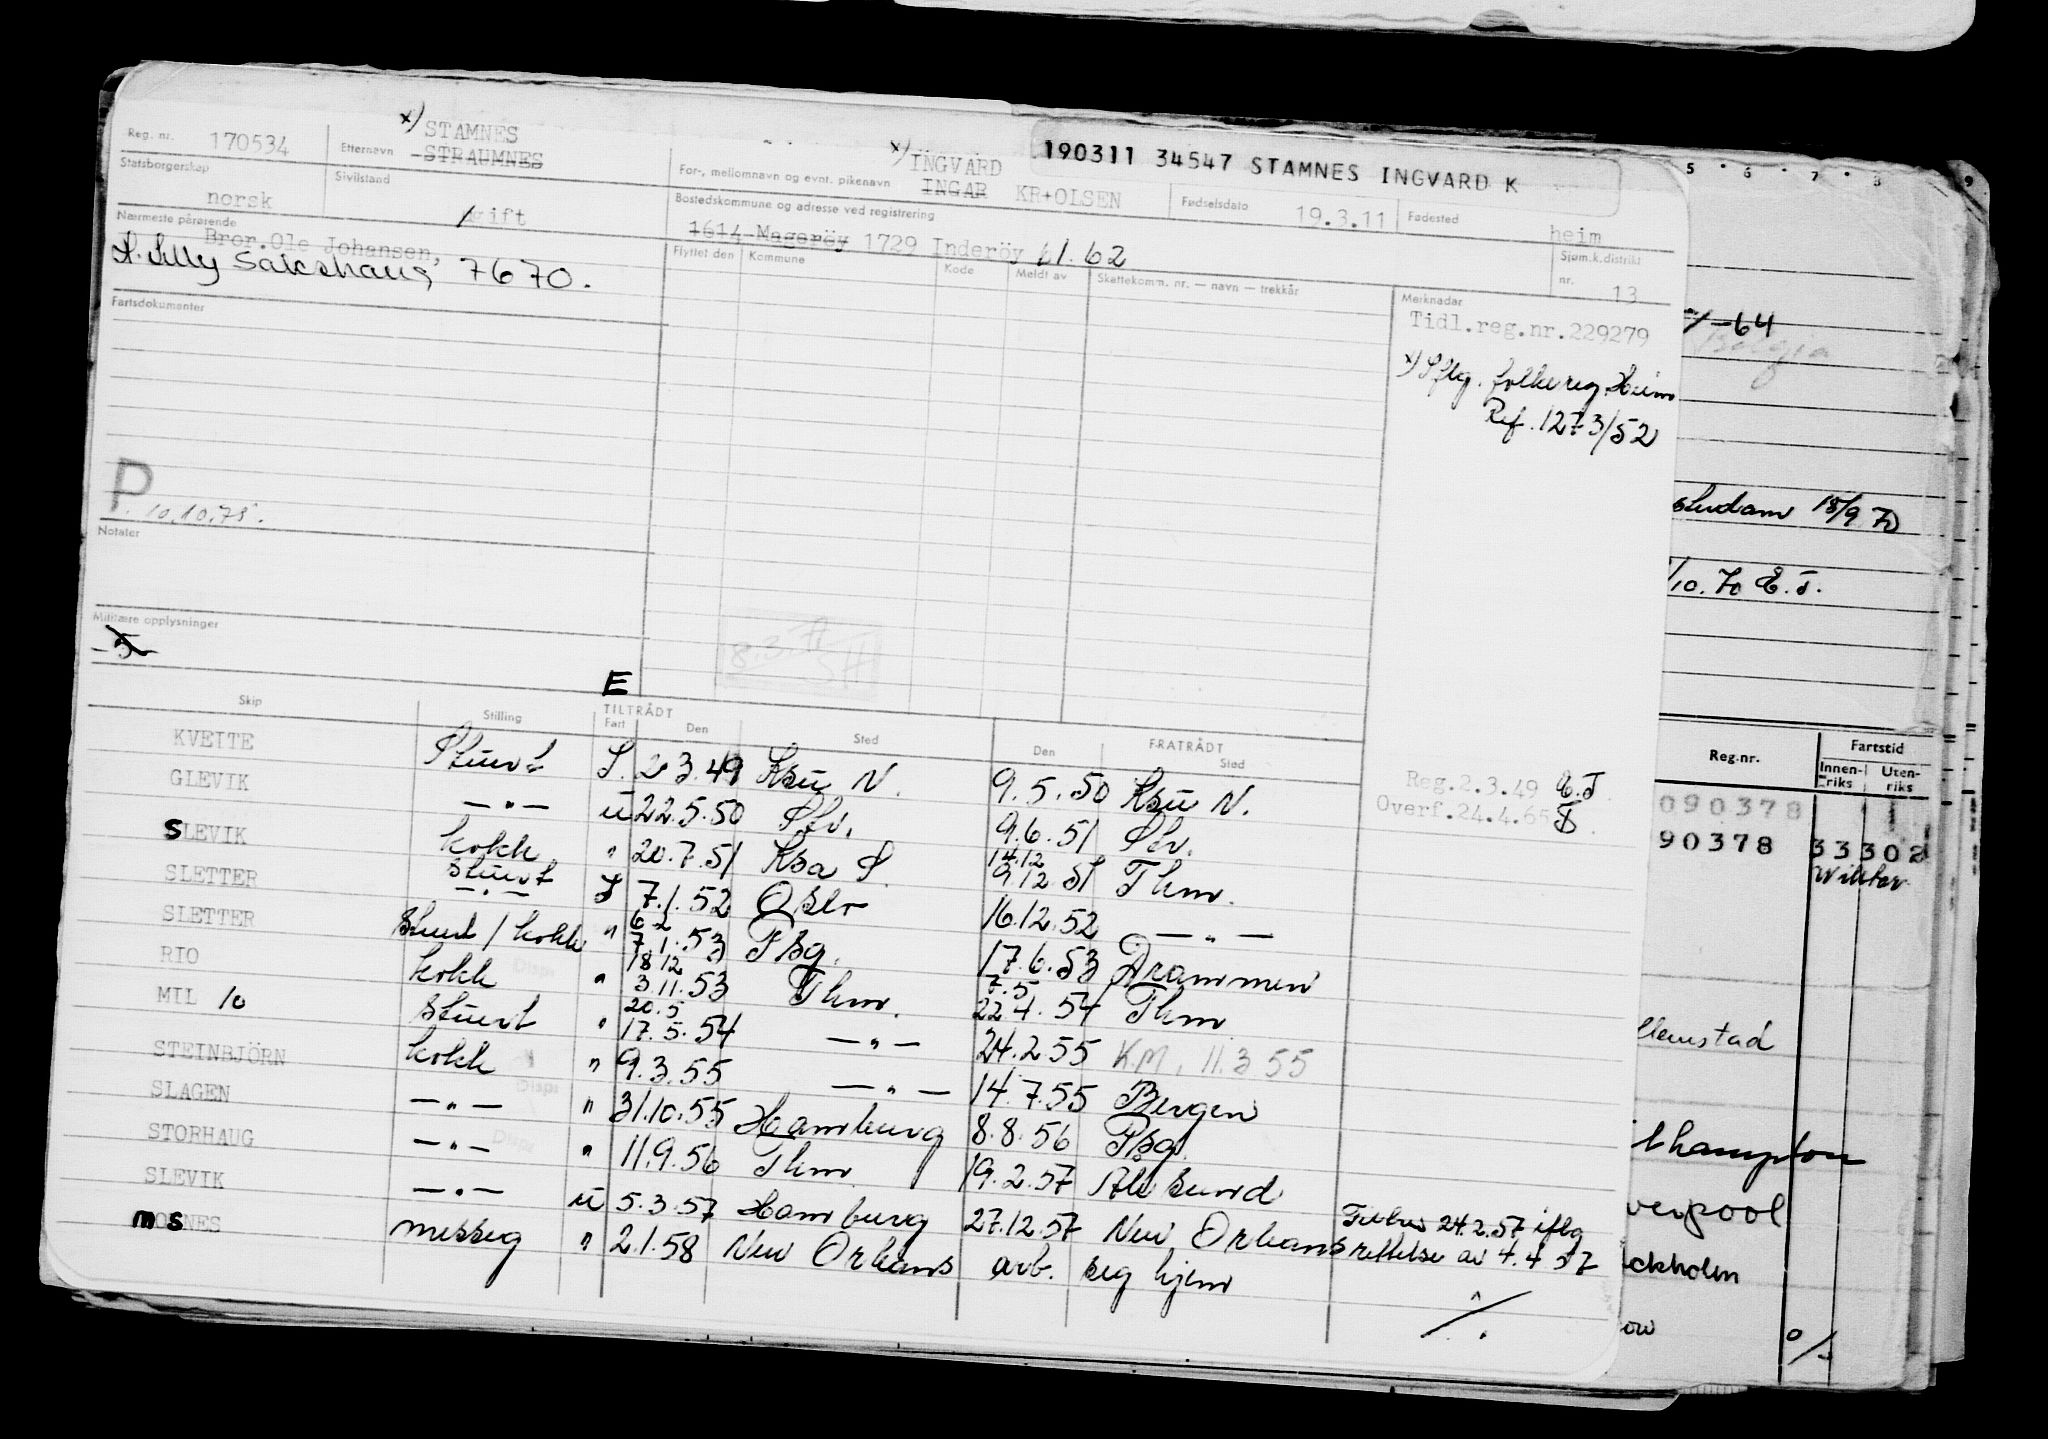 190311 34547 STAMNES INGVARD K
Reg. nr. 170534 Etternavn x) STAMNES STRAUMNES For-, mellomnavn og evnt. pikenavn x) INGVARD INGAR KR+OLSEN Fødselsdato 19.3.11 Fødested heim
Statsborgerskap norsk Sivilstand gift Bostedskommune og adresse ved registrering 1614 Mageröy 1729 Inderöy 61.62 Sjøm.k.distrikt nr. 13
Nærmeste pårørende Bror.Ole Johansen,
Sakshaug 7670.
Flyttet den Kommune Kode Meldt av Skattekomm. nr. — navn — trekkår Merknader
Fartsdokumenter
Tidl.reg.nr.229279
x) Iflg. folkereg. Heim
Ref. 1273/52
P. 10.10.75.
Notater
Militære opplysninger
-5-
8.3.71
E
Skip Stilling TILTRÅDT Fart Den Sted FRATRÅDT Den Sted
KVEITE Stuert I. 2.3.49 Ksu N. 9.5.50 Ksu N. Reg.2.3.49 E.T
GLEVIK —"— u 22.5.50 Slv. 9.6.51 Slv. Overf.24.4.65
SLEVIK kokk " 20.7.51 Ksa S. 14.12 9.12.51 Thm.
SLETTER stuert —"— I 7.1.52 Oslo 16.12.52 —"—
SLETTER Stuert / kokk " 6.2 7.1.53 Psg. 17.6.53 Drammen
RIO kokk " 18.12 3.11.53 Thm. 7.5 22.4.54 Thm
MIL 10 Stuert " 20.5 17.5.54 —"— 24.2.55 K.M. 11.3 55
STEINBJÖRN kokk " 9.3.55 —"— 14.7.55 Bergen
SLAGEN —"— " 31.10.55 Hamburg 8.8.56 Psg.
STORHAUG —"— " 11.9.56 Thm 19.2.57 Ålesund
SLEVIK —"— u 5.3.57 Hamburg 27.12.57 New Orleans 24.2.57 iflg
MOSNES messeg " 2.1.58 New Orleans arb. seg hjem rettelse av 4.4 57
5 6 7 8 9
-64
Belgia
18/9 70
10.70 E.T.
Reg.nr. Fartstid
Innenriks Utenriks
090378
90378 33302
llemstad
thampton
verpool
ockholm
ow